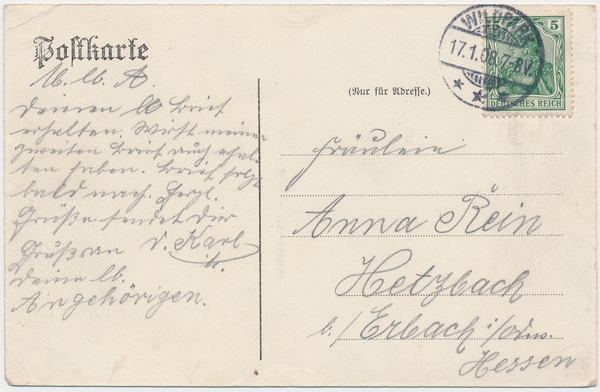 Postkarte
M. lb. A.
Deinen lb Brief
erhalten. Wirst meinen
zweiten Brief auch erhal-
ten haben. Brief folgt
bald nach. Herzl.
Grüße sendet Dir
Gruß an d. Karl
Deine lb.
Angehörigen.
(Nur für Adresse.)
WILDPARK
17.1.08.7-8V.
5
DEUTSCHES REICH
Fräulein
Anna Rein
Hetzbach
b./Erbach i/Odw.
Hessen